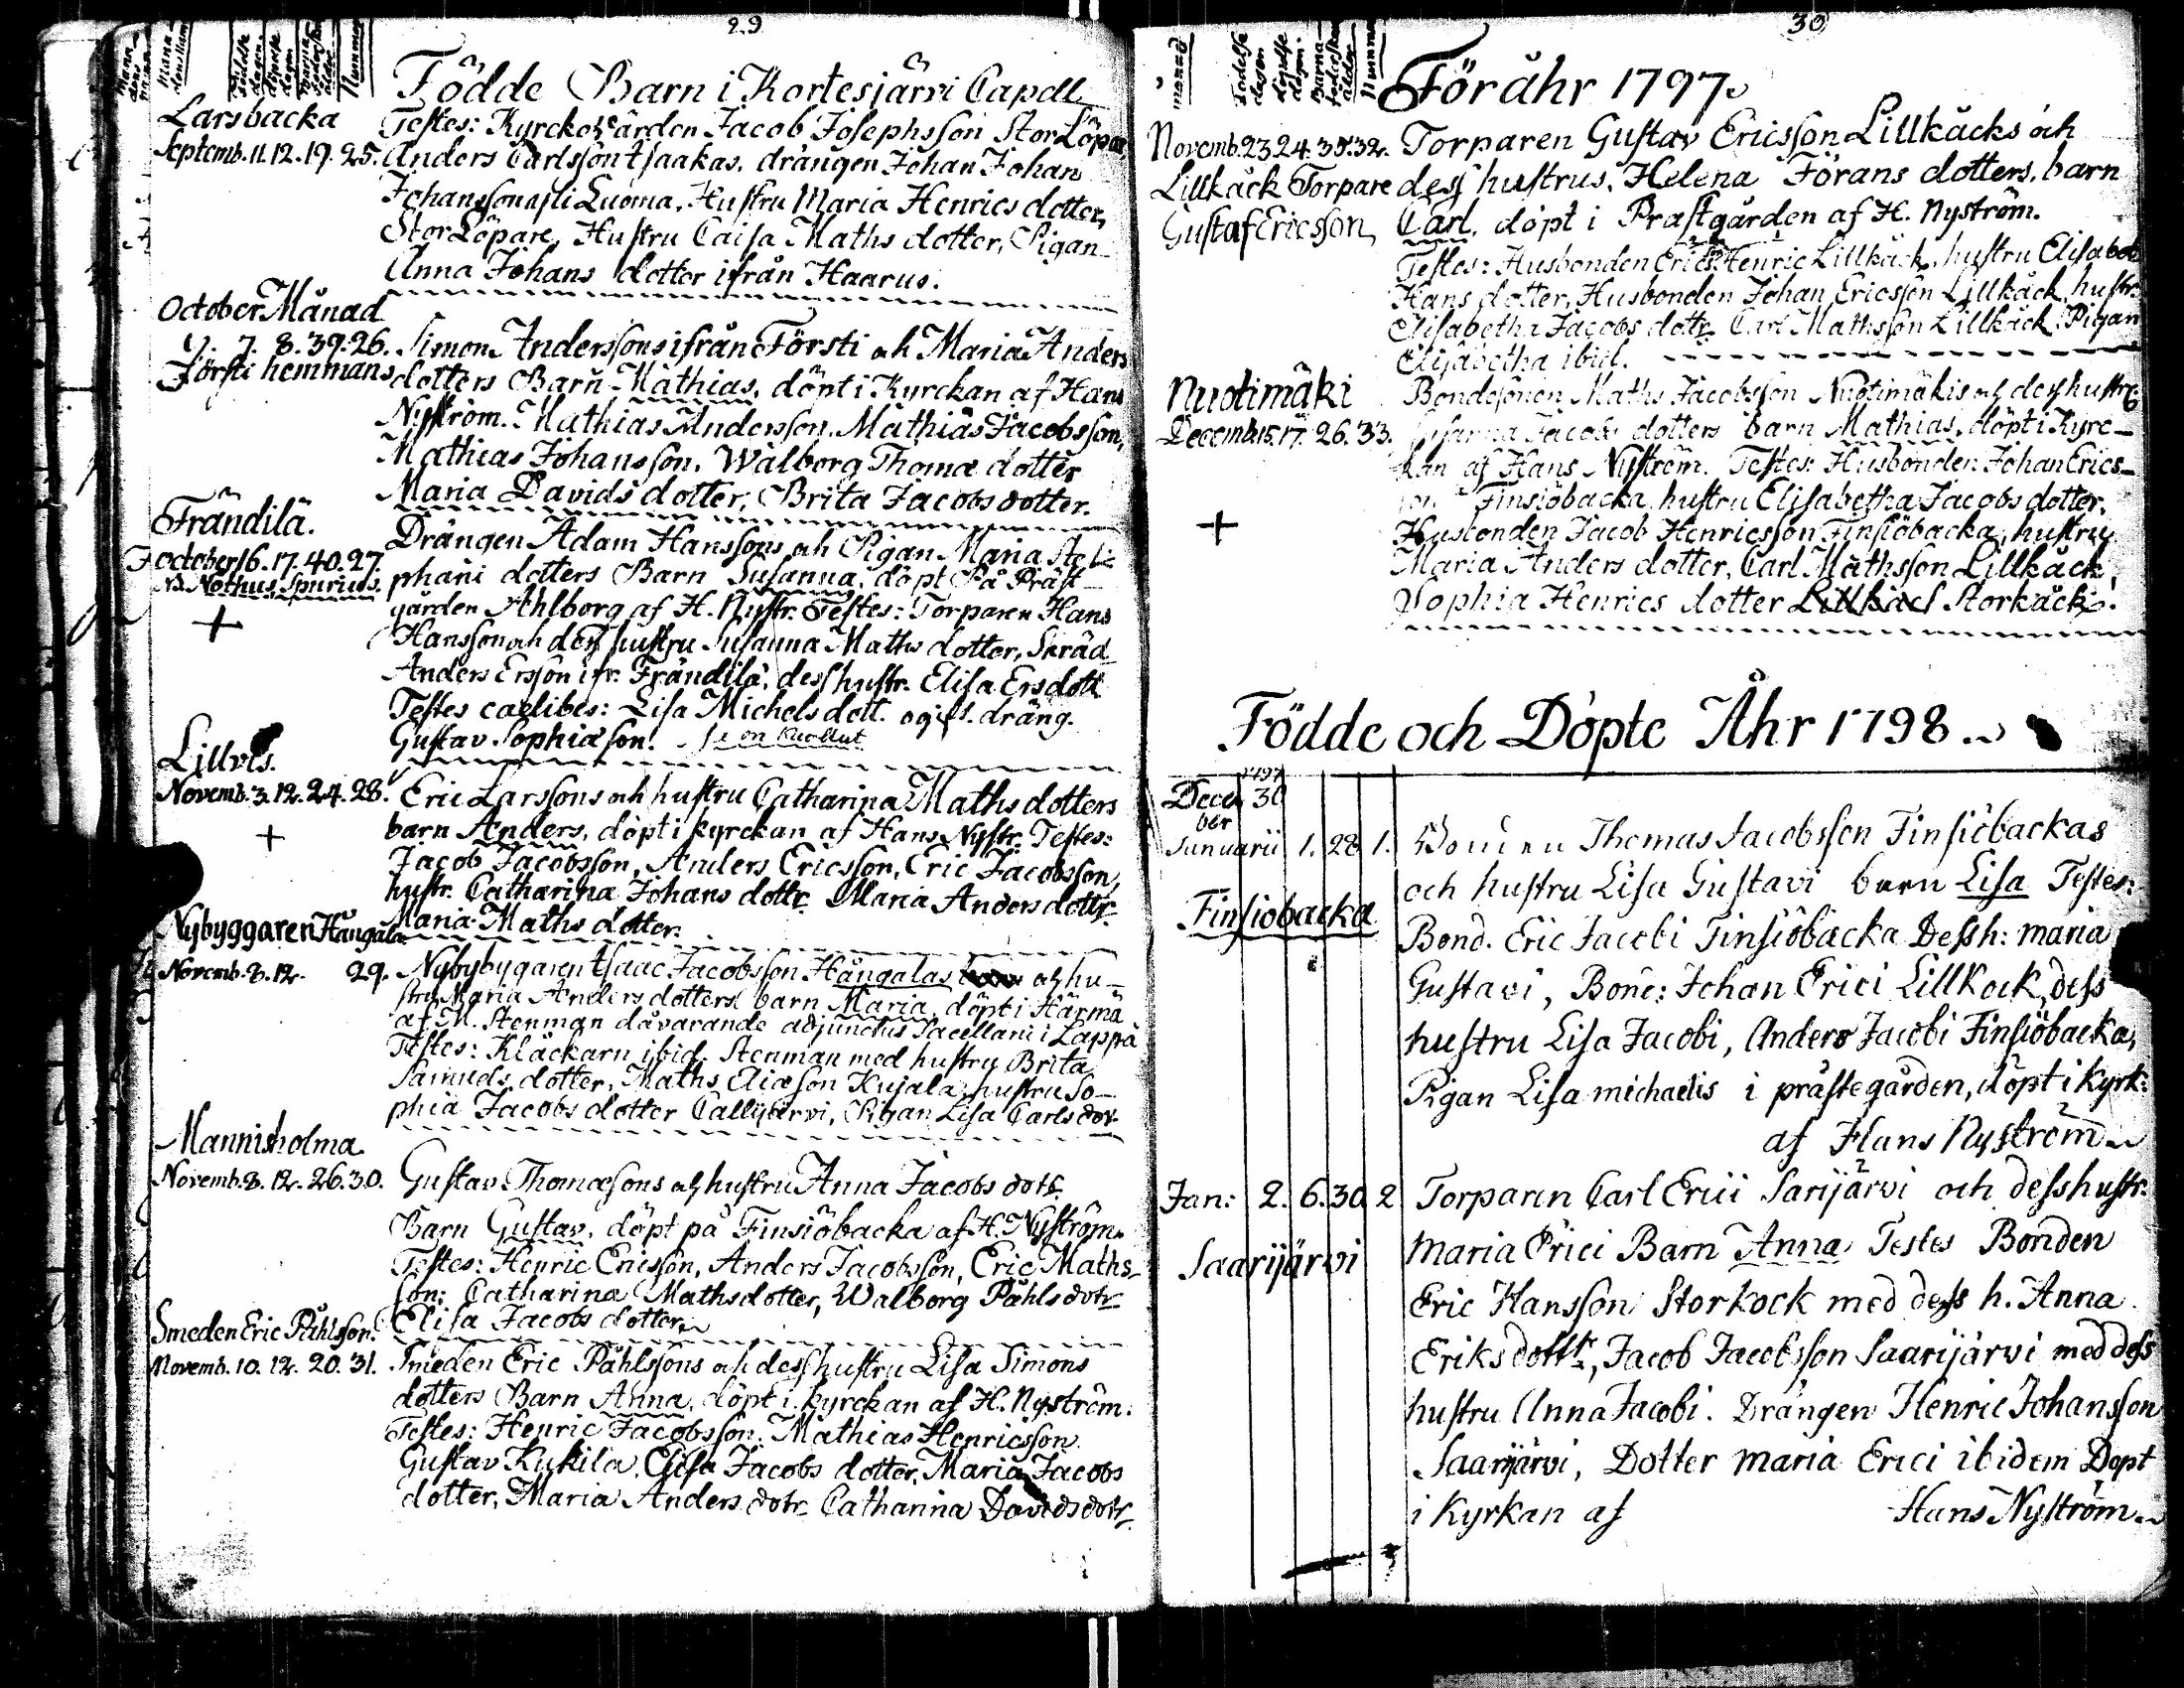 29
Födde Barn i Kortesjärvi Capell
Larsbacka
Septemb. 11. 12. 19. 25.
Testes: Kyrckovärden Jacob Josephsson StorLöpare
Anders Carlsson Isaakas, drängen Johan Johan
Johansson Luoma, Hustru Maria Henrics dotter,
StorLöpare, Hustru Caisa Maths dotter, Pigan
Anna Johans dotter ifrån Haarus.
October Månad
7. 8. 39. 26.
Försti hemmans
Simon Anderssons ifrån Försti och Maria Anders
dotters Barn Mathias, döpt i Kyrckan af Hans
Nyström. Mathias Andersson, Mathias Jacobsson,
Mathias Johansson, Walborg Thomæ dotter
Maria Davids dotter, Brita Jacobs dotter.
Frändilä.
October 16. 17. 40. 27.
NB. Nothus, Spurius.
+
Drängen Adam Hanssons och Pigan Maria Ste
phani dotters Barn Susanna, döpt På Präst
gården Ahlborg af H. Nystr. Testes: Torparen Hans
Hansson och dess hustru Susanna Maths dotter, Skräd
Anders Ersson ifr. Frändilä, dess hustr. Elisa Ers dott
Testes cælibes: Lisa Michels dott. och dräng.
Gustav Sophiæson.
Lillvis.
Novemb. 3. 12. 24. 28.
+
Eric Larssons och hustru Catharina Maths dotters
barn Anders, döpt i kyrckan af Hans Nystr. Testes:
Jacob Jacobsson, Anders Ericsson, Eric Jacobsson,
hustr. Catharina Johans dottr. Maria Anders dottr.
Maria Maths dotter.
Nybyggaren Hångala
Novemb. 8. 12. 29.
Nybybygaren Isaac Jacobsson Hångalas och hu-
stru Maria Anders dotters barn Maria, döpt i Härmä
af M. Stenman dåvarande adjunctus Sacellani i Lappå
Testes: Kläckarn ibid. Stenman med hustru Brita
Samuels dotter, Maths Eliæson Kujala, hustru So-
phia Jacobs dotter Callijärvi, Pigan Lisa Carls dotr
Mannisholma.
Novemb. 8. 12. 26. 30.
Gustav Thomæsons och hustru Anna Jacobs dotr.
Barn Gustav, döpt på Finsiöbacka af H. Nyström.
Testes: Henric Ericsson, Anders Jacobsson, Eric Maths-
son; Catharina Maths dotter, Walborg Påhls dotr
Elisa Jacobs dotter.
Smeden Eric Påhlsson.
Novemb. 10. 12. 20. 31.
Smeden Eric Påhlssons och dess hustru Lisa Simons
dotters Barn Anna, döpt i kyrckan af H. Nyström.
Testes: Henric Jacobsson, Mathias Henricsson
Gustav Kukila, Elisa Jacobs dotter, Maria Jacobs
dotter, Maria Anders dotr. Catharina Davids dotr.
30
För åhr 1797.
Novemb. 23. 24. 38. 32.
Lillkäck Torpare
Gustaf Ericsson
Torparen Gustav Ericsson Lillkäcks och
dess hustrus, Helena Jörans dotters, barn
Carl, döpt i Prästgården af H. Nyström.
Testes: Husbonden Henric Lillkäck, hustru Elisabet
Hans dotter, Husbonden Johan Ericsson Lillkäck, hustr.
Elisabetha Jacobs dottr. Carl Mathsson Lillkäck, Pigan
Elisabetha ibid.
Nuotimäki
Decemb. 15. 17. 26. 33.
+
Bondesonen Maths Jacobsson Nuotimäkis och dess hustr.
Susanna Jacobs dotters barn Mathias, döpt i Kyrc-
kan af Hans Nyström. Testes: Husbonden Johan Erics-
son Finsiöbacka, hustru Elisabetha Jacobs dotter,
Husbonden Jacob Henricsson Finsiöbacka, hustru
Maria Anders dotter, Carl Mathsson Lillkäck,
Sophia Henrics dotter Lillkäck Storkäck.
Födde och Döpte Åhr 1798
1797
Decem 30
ber
Januarii 1. 28. 1.
Finsiobacka
Bonden Thomas Jacobsson Finsiöbackas
och hustru Lisa Gustavi barn Lisa Testes:
Bond. Eric Jacobi Finsiöbacka Dess h: maria
Gustavi, Bond: Johan Erici Lillkock, dess
hustru Lisa Jacobi, Anders Jacobi Finsiöbacka,
Pigan Lisa michaelis i prästegården, döpt i kyrk:
af Hans Nyström
Jan: 2. 6. 30. 2.
Saarijärvi
Torparen Carl Erici Sarijärvi och dess hustr.
Maria Erici Barn Anna Testes Bonden
Eric Hansson Storkock med dess h. Anna
Eriks dottr, Jacob Jacobsson Saarijärvi med dess
hustru Anna Jacobi. Drängen Henric Johansson
Saarijärvi, Dotter maria Erici ibidem Döpt
i Kyrkan af Hans Nyström